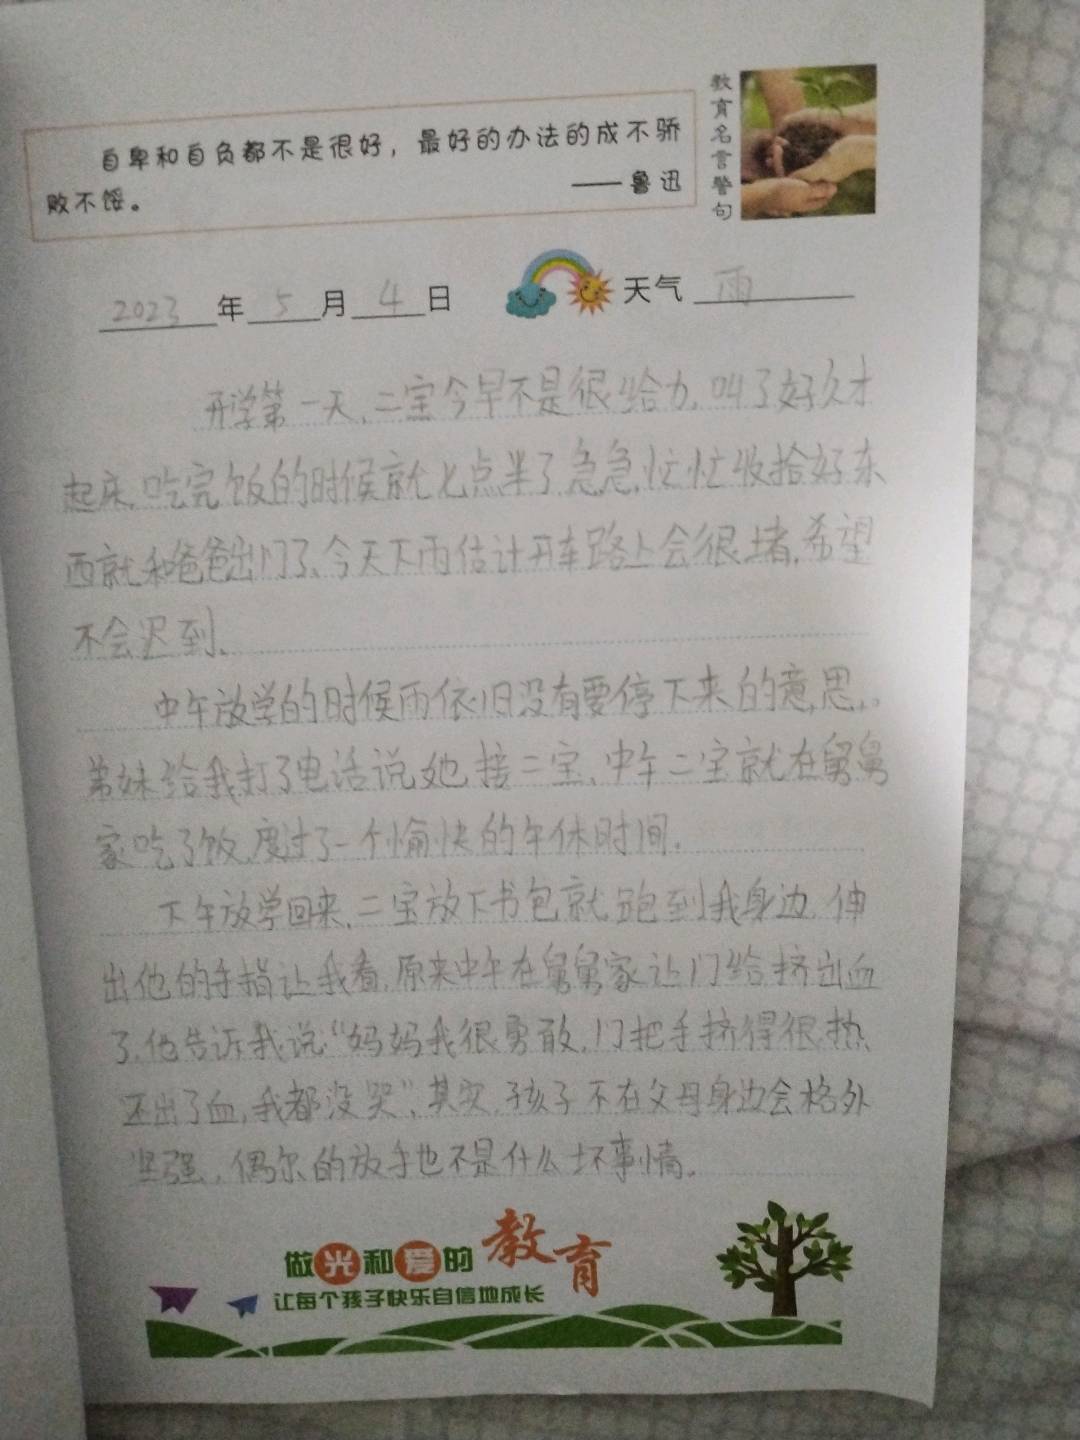 教育名言警句
自卑和自负都不是很好，最好的办法的成不骄
败不馁。
——鲁迅
2023年5月4日 天气 雨
开学第一天、二宝今早不是很给力，叫了好久才
起床，吃完饭的时候就七点半了急急忙忙收拾好东
西就和爸爸出门了、今天下雨估计开车路上会很堵，希望
不会迟到、
中午放学的时候雨依旧没有要停下来的意思。
弟妹给我打了电话说她接二宝、中午二宝就在舅舅
家吃了饭，度过了一个愉快的午休时间。
下午放学回来，二宝放下书包就跑到我身边，伸
出他的手指让我看，原来中午在舅舅家让门给挤出血
了，他告诉我说“妈妈我很勇敢，门把手挤得很热，
还出了血，我都没哭”、其实，孩子不在父母身边会格外
坚强，偶尔的放手也不是什么坏事情。
做光和爱的教育
让每个孩子快乐自信地成长